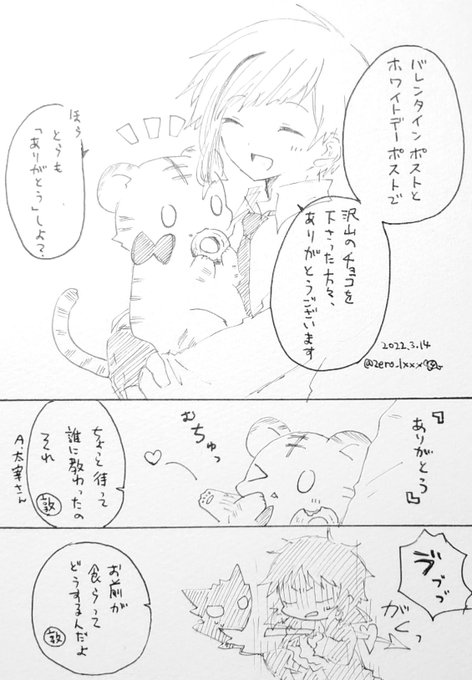 バレンタインポストと
ホワイトデーポストで
沢山のチョコを
下さった方々、
ありがとうございます
ほら
とらも
「ありがとう」しよ?
2022.3.14
@zero_lxxx
『ありがとう』
むちゅっ
ちょっと待って
誰に教わったの
それ
敦
A.太宰さん
ヴッッッ
がくっ
お前が
食らって
どうするんだよ
敦